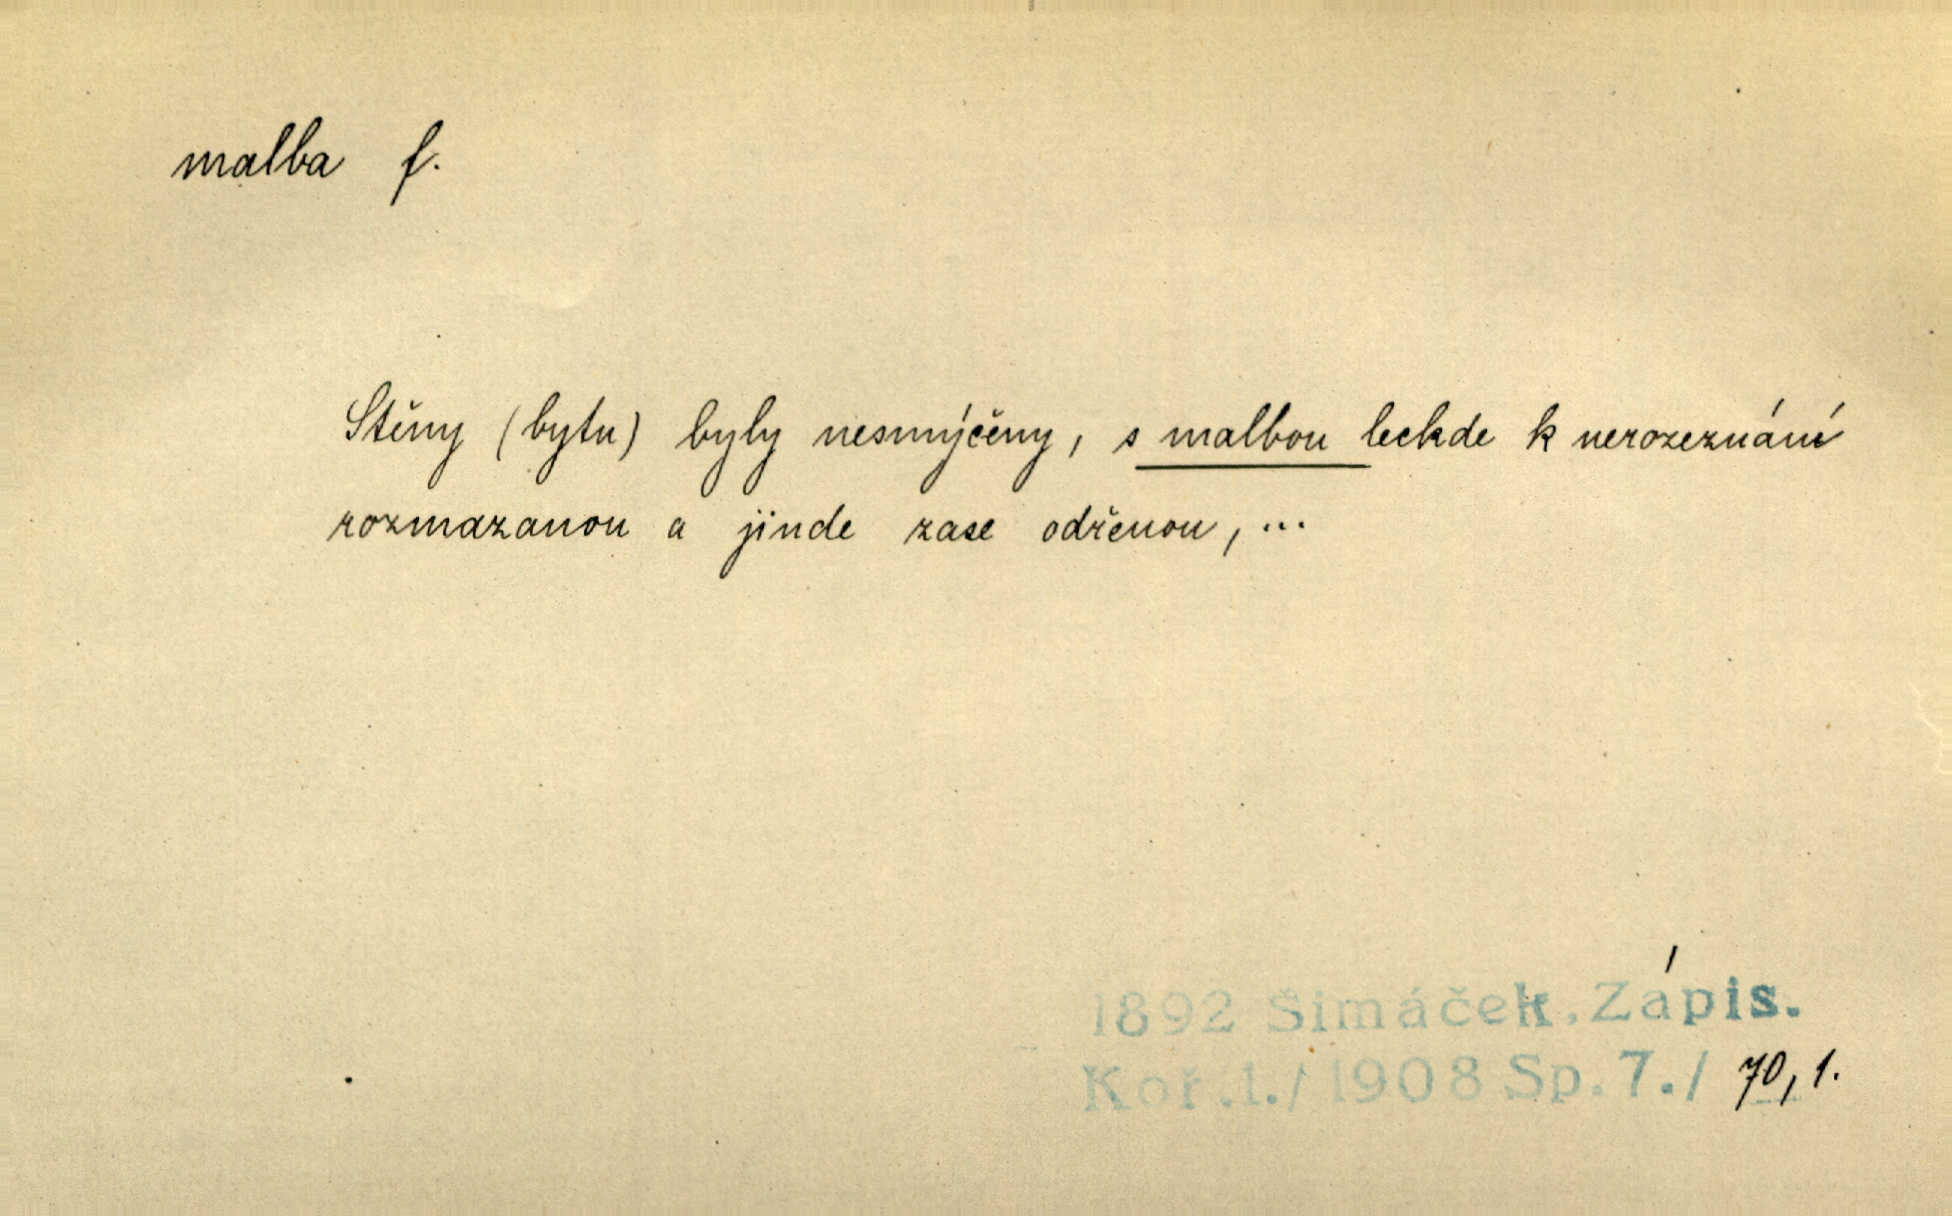 malba f.
Stěny (bytu) byly nesmýčeny, s malbou leckde k nerozeznání
rozmazanou a jinde zase odřenou, ...
1892 Šimáček. Zápis.
Koř. 1./ 1908 Sp. 7./ 70, 1.